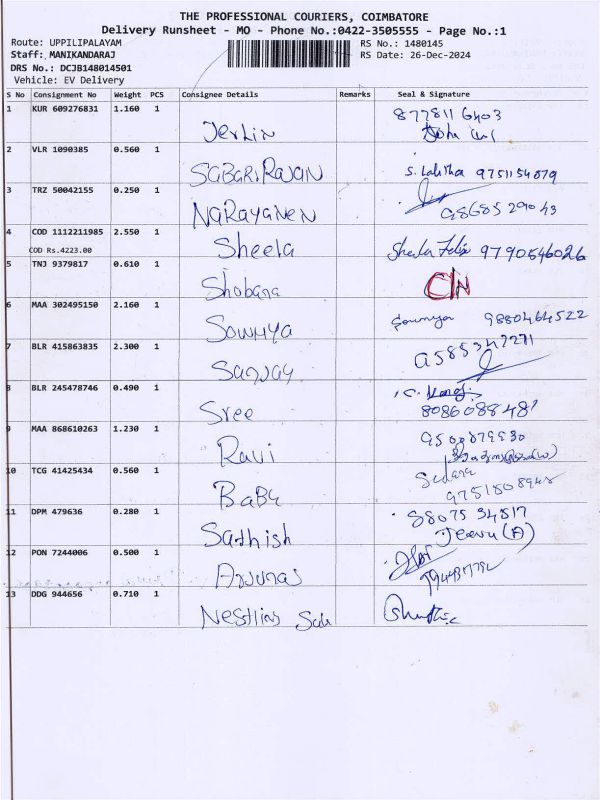 THE PROFESSIONAL COURIERS, COIMBATORE
Delivery Runsheet - MO - Phone No.:0422-3505555 - Page No.:1
Route: UPPILIPALAYAM
RS No.: 1480145
Staff: MANIKANDARAJ
RS Date: 26-Dec-2024
DRS No.: DCJB148014501
Vehicle: EV Delivery
S No Consignment No Weight PCS Consignee Details Remarks Seal & Signature
1 KUR 609276831 1.160 1 Jerlin 8778116403
2 VLR 1090385 0.560 1 SABARIRAJAN S. Lalitha 9751154079
3 TRZ 50042155 0.250 1 NARAYANEN 9868529043
4 COD 1112211985 2.550 1 Sheela Sheela Felix 9790546026
COD Rs.4223.00
5 TNJ 9379817 0.610 1 Shobana C/N
6 MAA 302495150 2.160 1 SOWMYA Sowmya 9880464522
7 BLR 415863835 2.300 1 Sanjay 9585347271
8 BLR 245478746 0.490 1 Sree 8086088481
9 MAA 868610263 1.230 1 Ravi 9500079930
10 TCG 41425434 0.560 1 BaBu 9751508948
11 DPM 479636 0.280 1 Sathish 88075 34517
Jeevu (A)
12 PON 7244006 0.500 1
13 DDG 944656 0.710 1